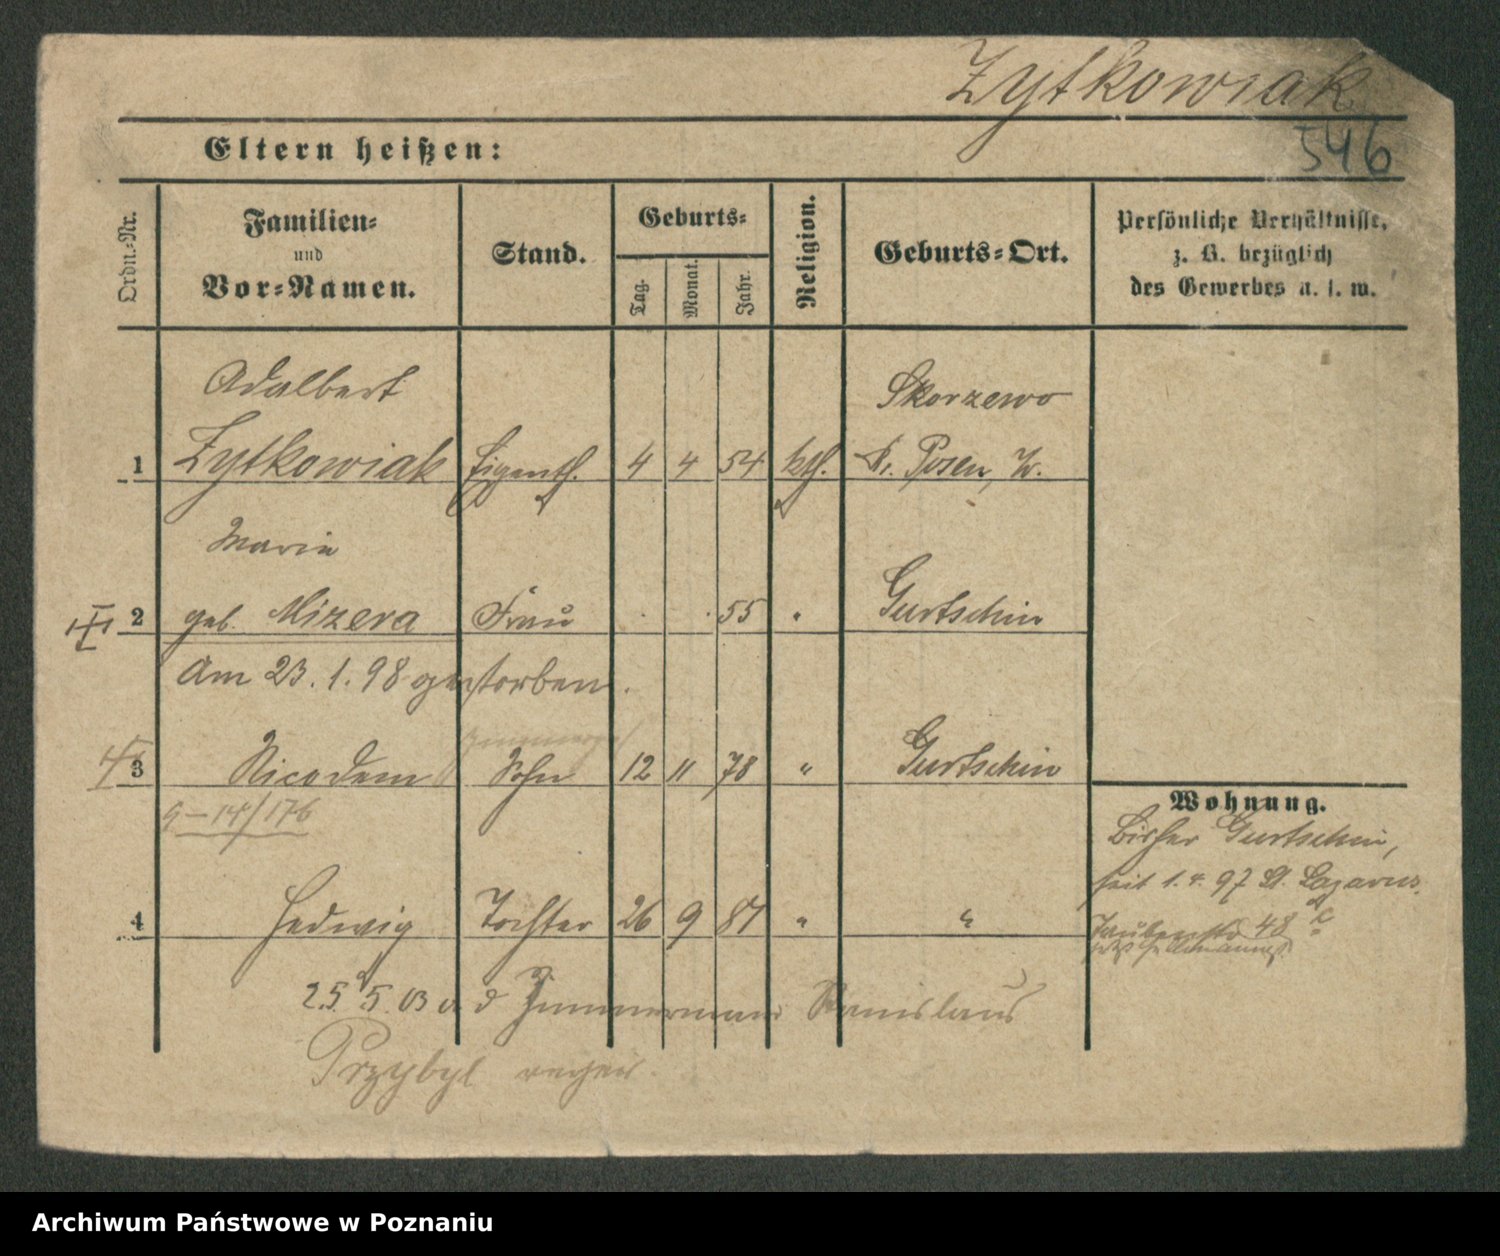 Zytkowiak
546
Eltern heißen:
Ordn.-Nr.
Familien-
und
Vor-Namen.
Stand.
Geburts-
Tag.
Monat.
Jahr.
Religion.
Geburts-Ort.
Persönliche Verhältnisse,
z. B. bezüglich
des Gewerbes u. s. w.
Adalbert
Skorzewo
1 Zytkowiak Eigenth. 4 4 54 kth. Kr. Posen, W.
Maria
2 geb. Mizera Frau . . 55 " Gurtschin
Am 23. 1. 98 gestorben.
3 Nicodem Sohn 12 11 78 " Gurtschin
9-14/176
Wohnung.
Bisher Gurtschin,
seit 1. 4. 97 St. Lazarus
4 Hedwig Tochter 26 9 87 " "
48
25. 5. 03 a d Zimmermann Stanislaus
Przybyl
Archiwum Państwowe w Poznaniu